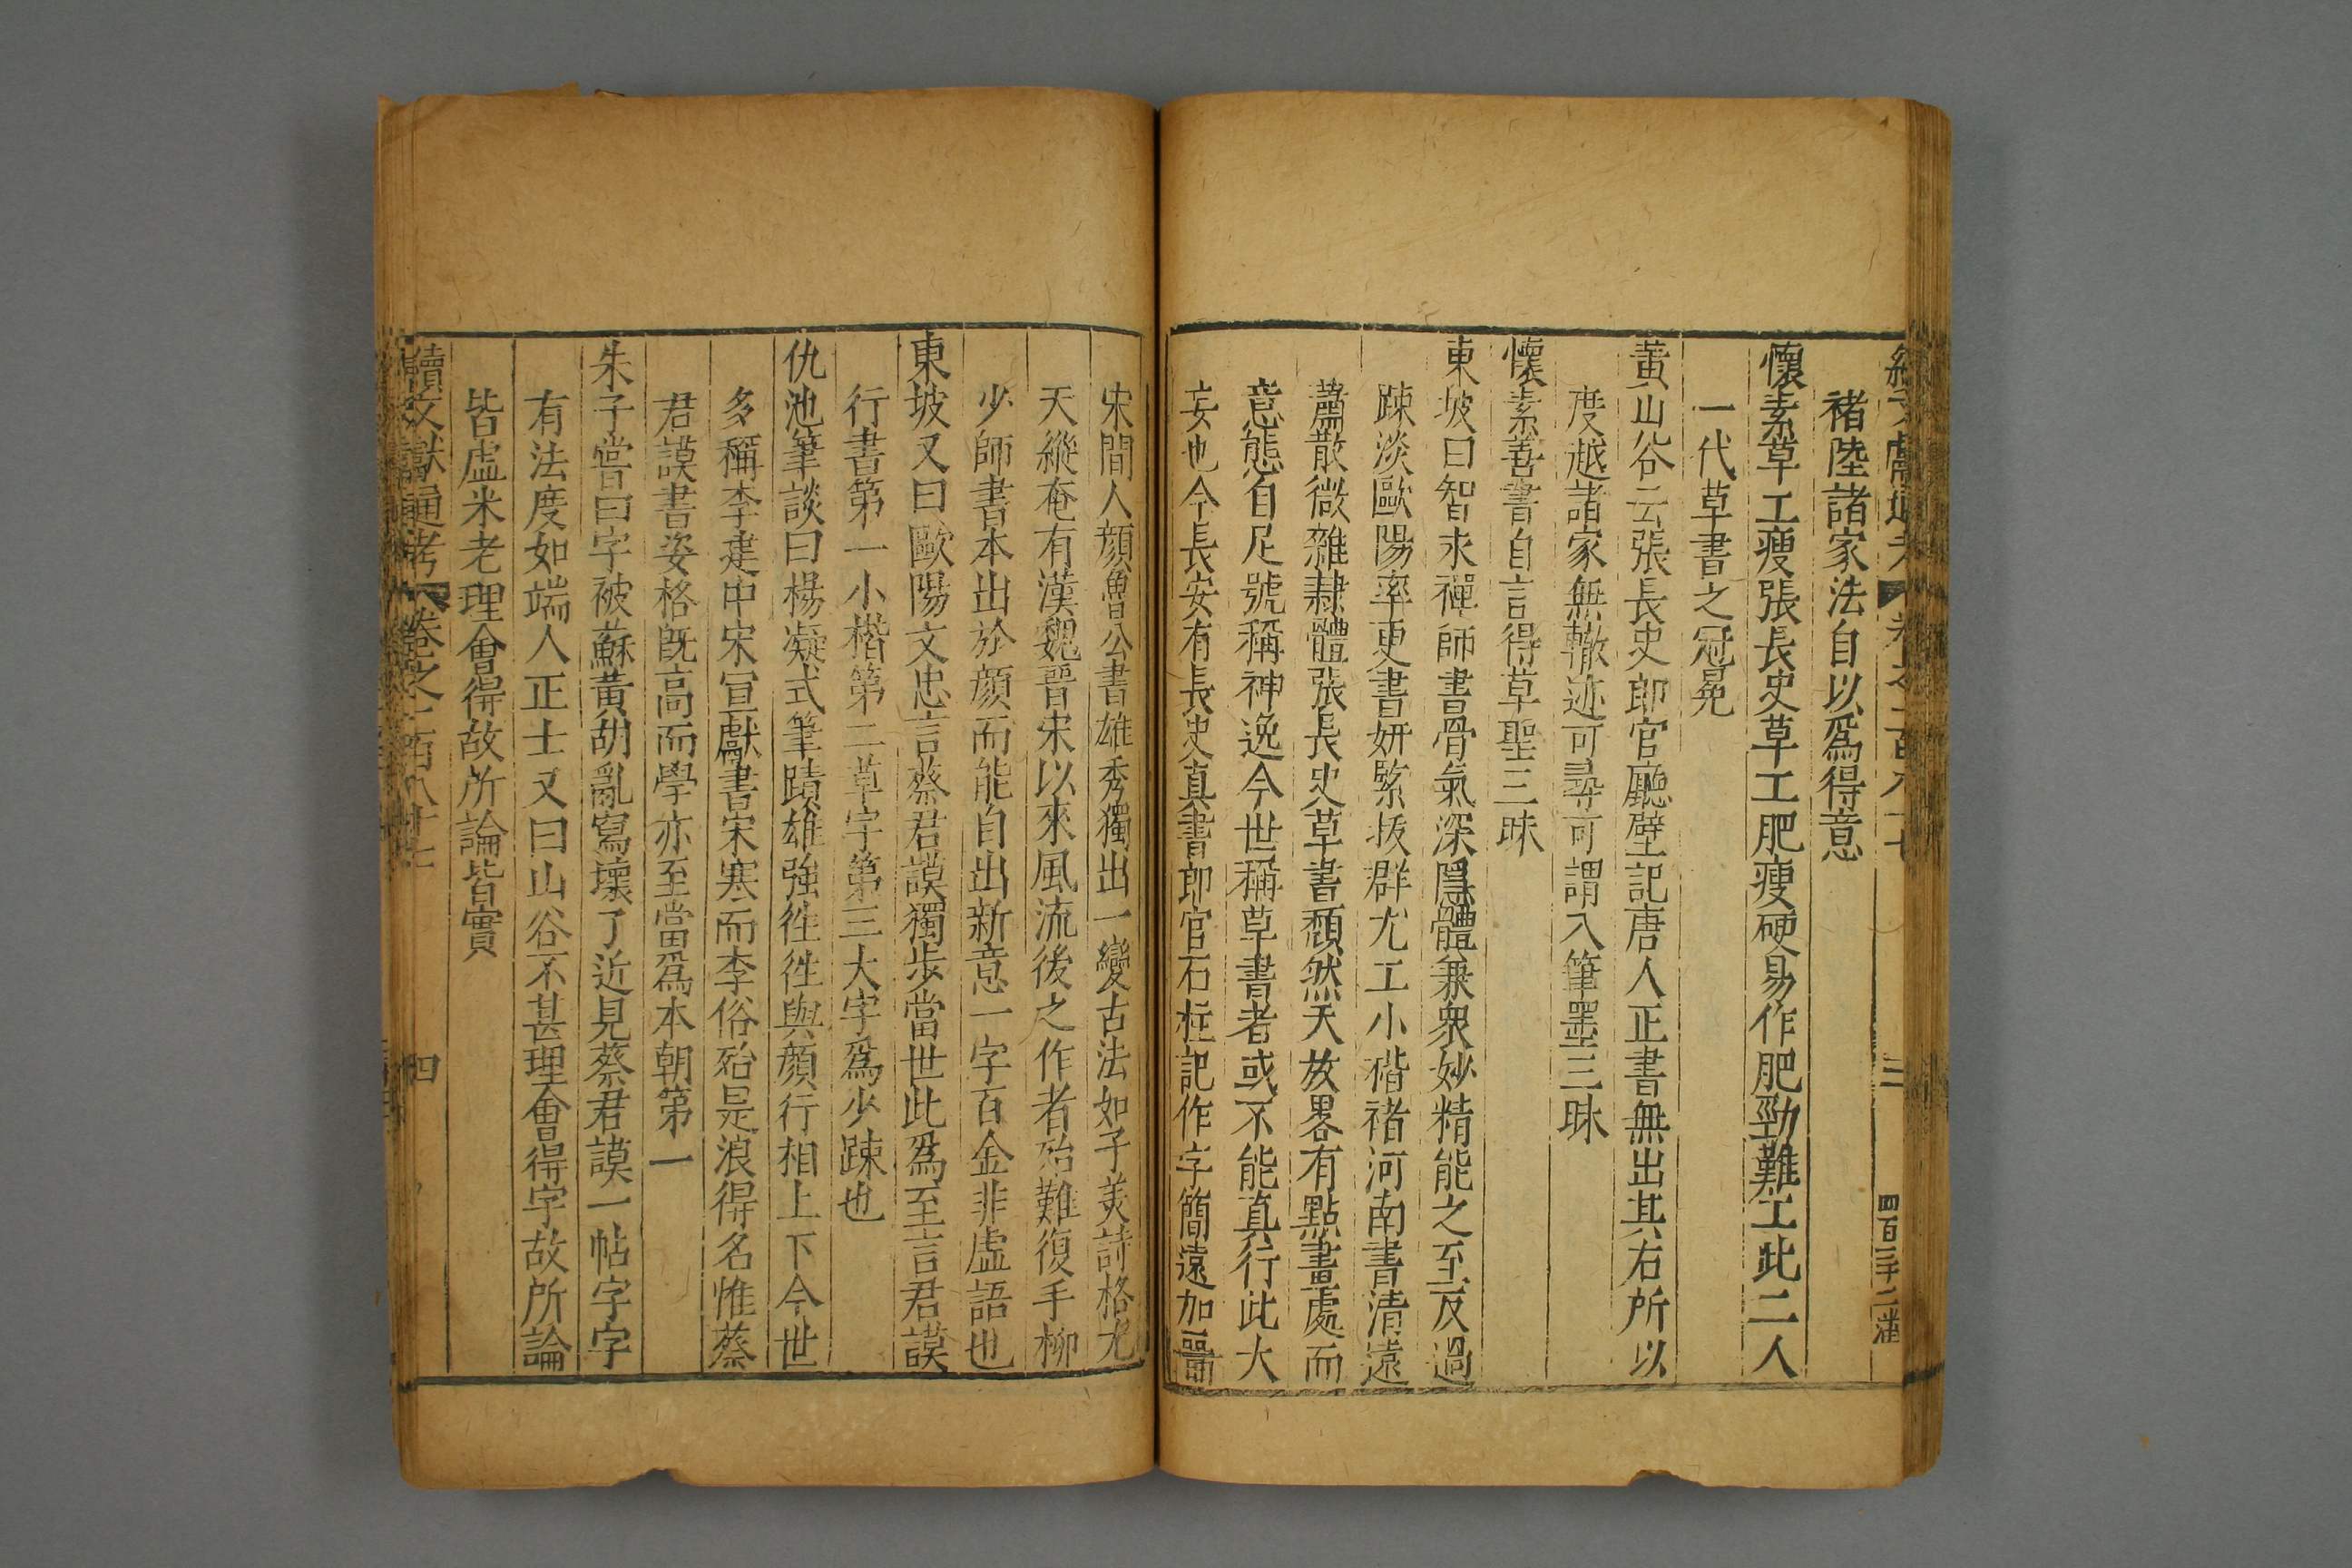 褚陸諸家法自以爲得意
懷素草工瘦張長史草工肥瘦硬易作肥勁難工此二人
一代草書之冠冕
黃山谷云張長史郎官廳壁記唐人正書無出其右所以
度越諸家無轍迹可尋可謂入筆墨三昧
懷素善書自言得草聖三昧
東坡曰智永禪師書骨氣深隱體兼衆妙精能之至反過
踈淡歐陽率更書妍緊拔群尤工小楷褚河南書清遠
蕭散微雜隸體張長史草書頹然天放畧有點畫處而
意態自足號稱神逸今世稱草書者或不能真行此大
妄也今長安有長史真書郎官石柱記作字簡遠如晉
宋間人顏魯公書雄秀獨出一變古法如子美詩格尤
天縱奄有漢魏晉宋以來風流後之作者殆難復手柳
少師書本出於顏而能自出新意一字百金非虛語也
東坡又曰歐陽文忠言蔡君謨獨步當世此爲至言君謨
行書第一小楷第二草字第三大字爲少踈也
仇池筆談曰楊凝式筆蹟雄強徃徃與顏行相上下今世
多稱李建中宋宣獻書宋寒而李俗殆是浪得名惟蔡
君謨書姿格旣高而學亦至當爲本朝第一
朱子嘗曰字被蘇黃胡亂寫壞了近見蔡君謨一帖字字
有法度如端人正士又曰山谷不甚理會得字故所論
皆虛米老理會得故所論皆實
續文獻通考 卷之一百八十七 四